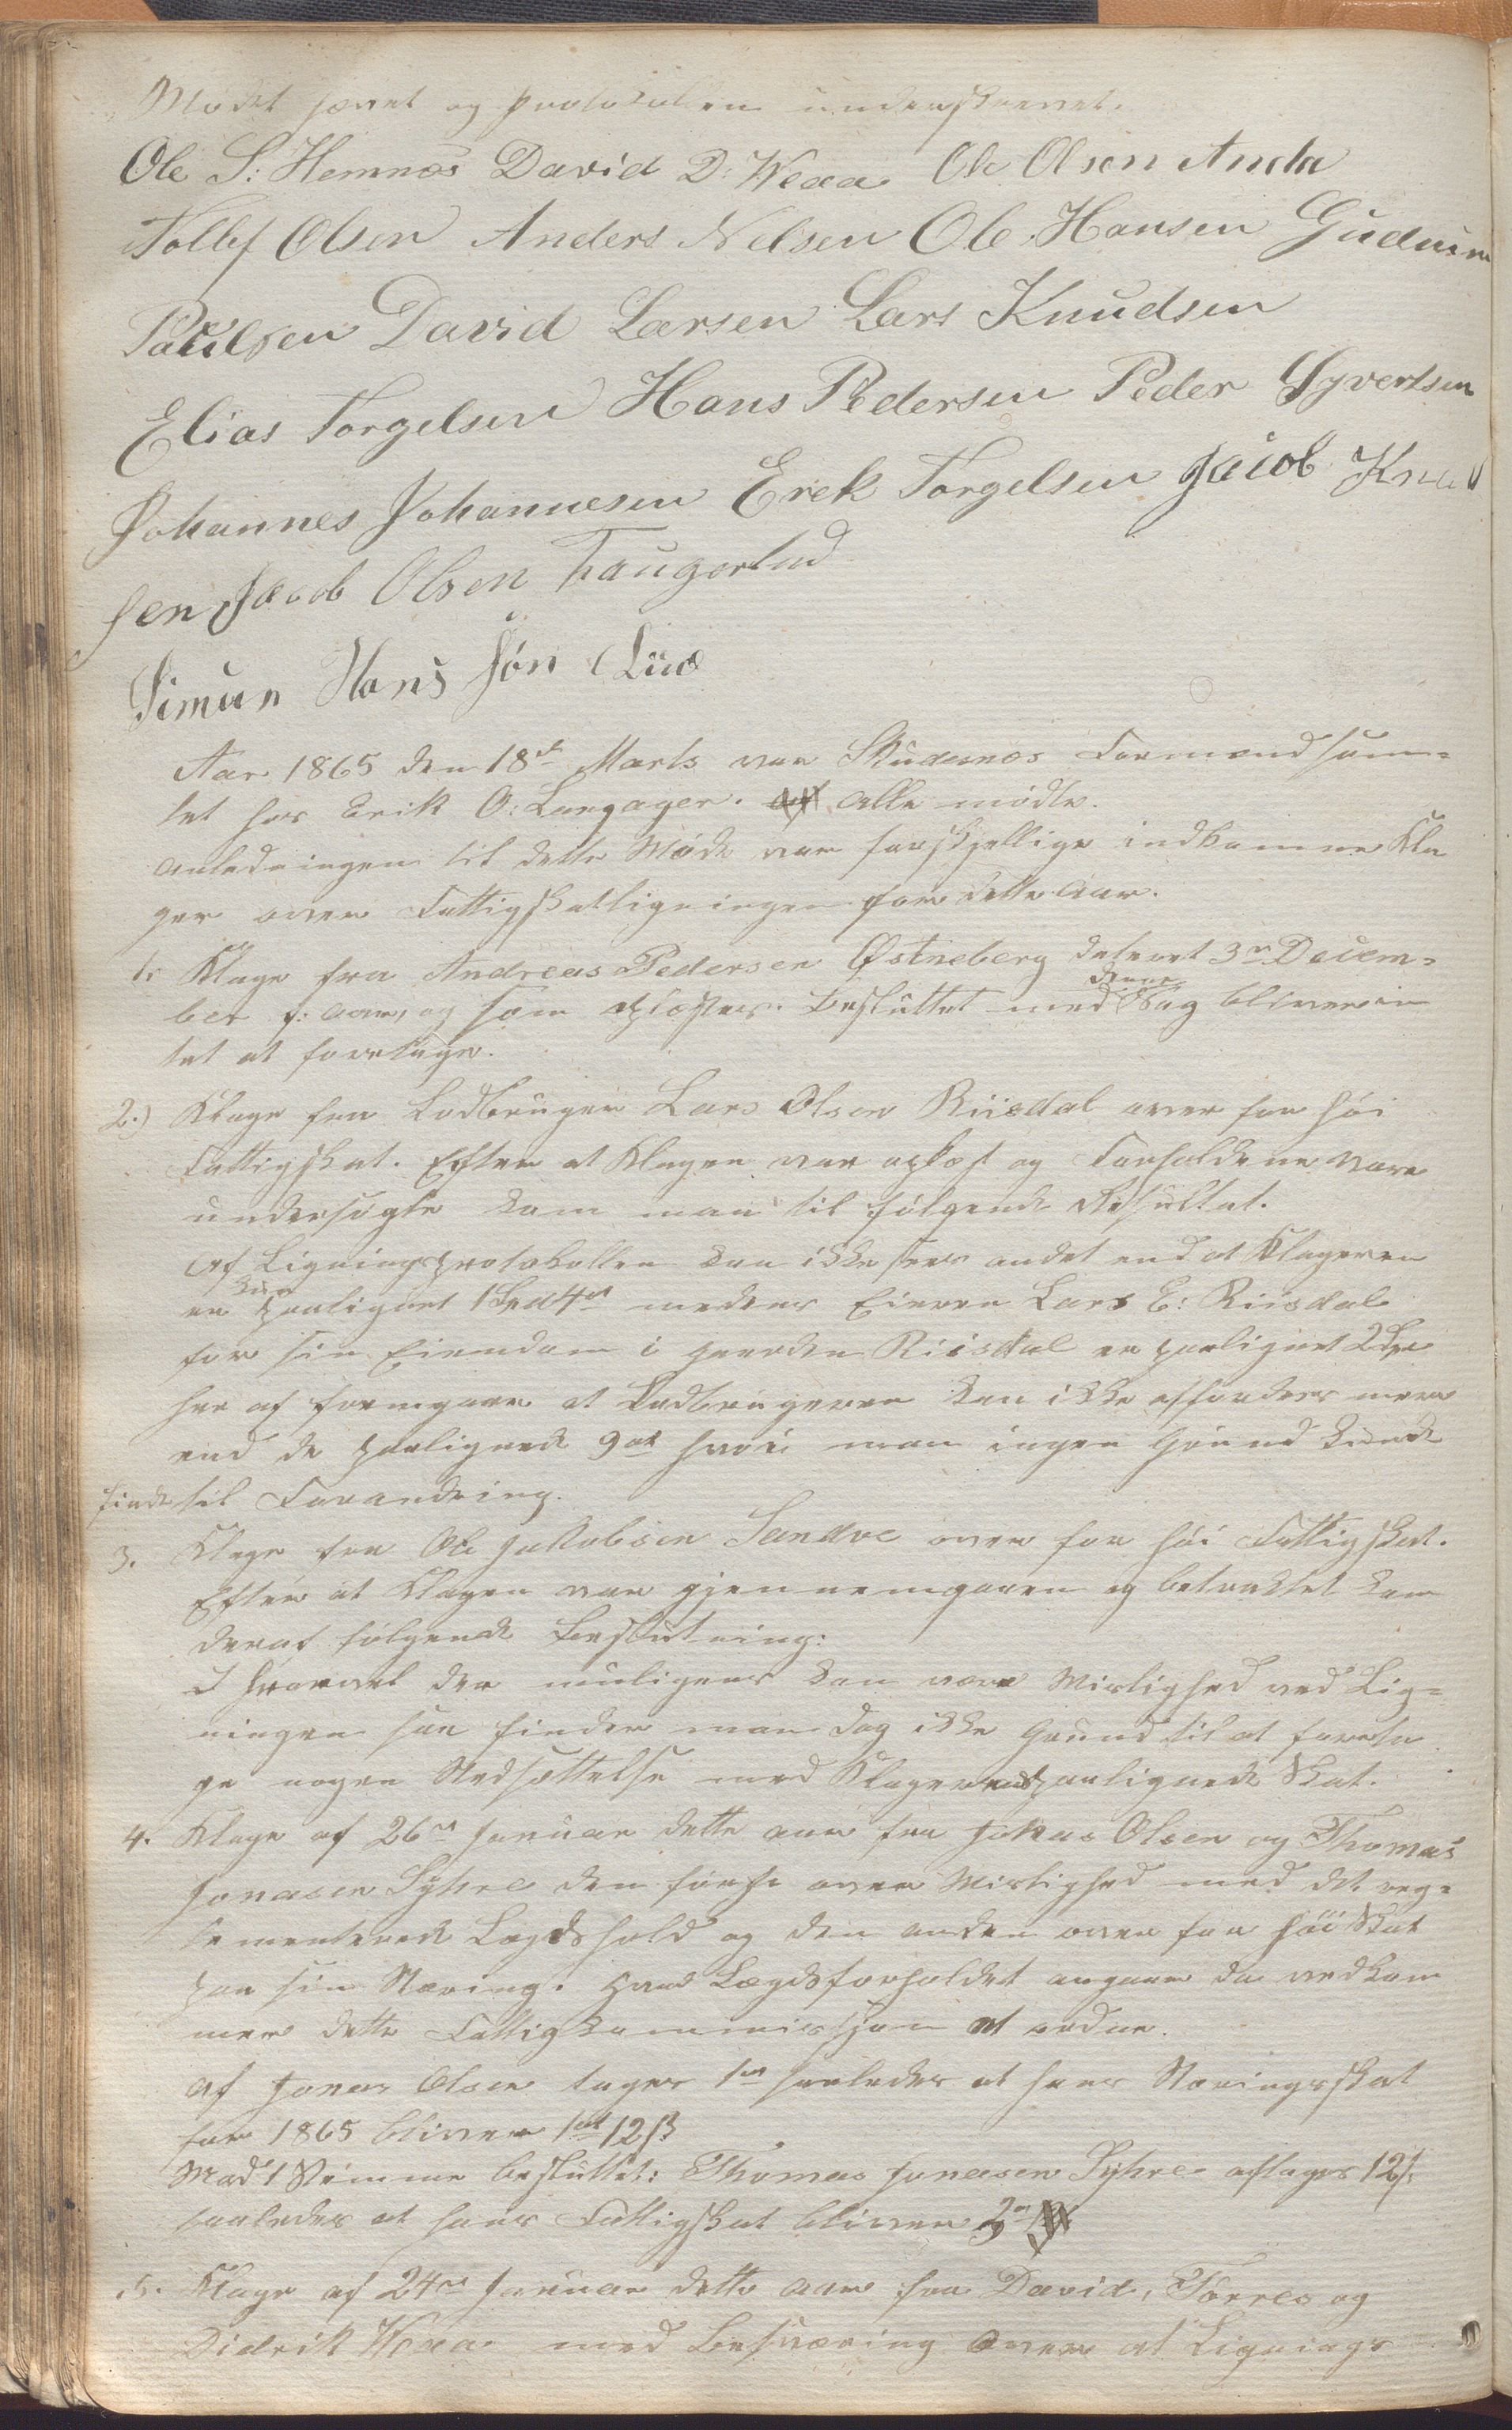 Mødet hævet og Protokolen underskrevet.
Ole S: Hemnes David D: Weaa Ole Olsen Anda
Tollef Olsen Anders Nelsen Ole Hansen Gudmun
Paulsen David Larsen Lars Knudsen
Elias Torgelsen Hans Pedersen Peder Syvertsen
Johannes Johannesen Erek Torgelsen Jacob Knud
sen Jacob Olsen
Simun Hans Søn Lie
Aar 1865 den 18de Marts var Skudesnes Formændsam=
let hos Erik O: Langager. Alle mødte.
Anledningen til dette Møde var forskjellige indkomne Kla
ger over Fattigskatligningen for dette Aar.
1. Klage fra Andreas Pedersen Østneberg dateret 3de Decem=
ber f: Aar, og som oplæstes. Besluttet med denne Sag bliver in
tet at foretage.
2.) Klage fra Ladbruger Lars Olsen Riisdal over for høi
Fattigskat. Efter at Klagen var oplæst og Forholdene vare
undersøgte kom man til følgende Resultat.
Af Ligningsprotokollen kan ikke sees andet end at Klageren
er kun paalignet 1 medens Eieren Lars E: Riisdal
for sin Eiendom i Gaarden Riisdal er paalignet 2
her af fremgaar at Ladbrugeren kan ikke affordres mere
end de paalignede 9 hvori man ingen Grund kunde
finde til Forandring.
3. Klage fra Ole Jakobsen Sandve over for høi Fattigskat.
Efter at Klagen var gjennemgaaen og betraktet kom
deraf følgende Beslutning:
I hvorvel der muligens kan være Mislighed ved Lig=
ningen saa finder man dog ikke Grund til at foreta
ge nogen Nedsættelse med Klagerens paalignede Skat.
4. Klage af 26de Januar dette Aar fra Jonas Olsen og Thomas
Jonasen Syhre den første over Mislighed med det reg=
lementerede Lægdshold og den anden over for høi Skat
paa sin Næring. Hvad Lægdsforholdet angaar da vedkom
mer dette Fattigkommissjon at ordne.
Af Jonas Olsen tages 1 saaledes at hans Næringsskat
for 1865 bliver 1 12 ß
Mod 1 Stemme besluttet: Thomas Jonasen Syhre aftages 12 ß:
saaledes at hans Fattigskat bliver
5. Klage af 24de Januar dette Aar fra David, Torres og
Didrik Weaa med Besværing over at Lignings